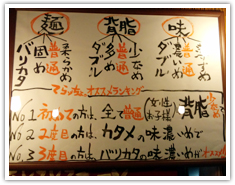 麺 背脂 味
バリカタ 固め 普通 柔らかめ
ダブル 多め 普通 少なめ
ダブル 濃いめ 普通 うすめ
オススメランキング
No.1 初めての方は、全て普通 (女性 お子様) 背脂 少なめ
No.2 2度目の方は、カタメの味濃いめで
No.3 3度目の方は、バリカタの味濃いめが